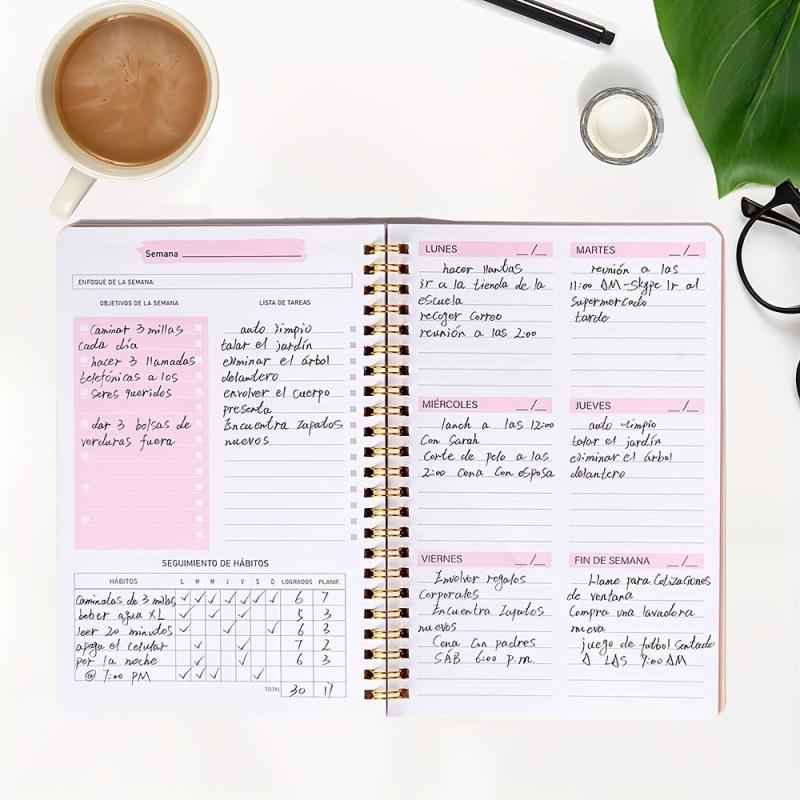 Semana
ENFOQUE DE LA SEMANA:
OBJETIVOS DE LA SEMANA
Caminar 3 millas
cada día
hacer 3 llamadas
telefónicas a los
seres queridos
dar 3 bolsas de
verduras fuera
LISTA DE TAREAS
auto limpio
talar el jardín
eliminar el árbol
delantero
envolver el cuerpo
presenta
Encuentra Zapatos
nuevos
SEGUIMIENTO DE HÁBITOS
HÁBITOS L M M J V S D LOGRADOS PLANIF.
Caminatas de 3 millas 6 7
beber agua XL 5 3
leer 20 minutos 6 3
apaga el celular 7 2
por la noche 6 3
@ 7:00 PM
TOTAL 30 17
LUNES __/__
hacer llantas
ir a la tienda de la
escuela
recoger Correo
reunión a las 2:00
MARTES __/__
reunión a las
11:00 AM-Skype Ir al
Supermercado
tarde
MIÉRCOLES __/__
lanch a las 12:00
Con Sarah
Corte de pelo a las
2:00 Cena Con esposa
JUEVES __/__
auto limpio
talar el jardín
eliminar el árbol
delantero
VIERNES __/__
Envolver regalos
Corporales
Encuentra Zapatos
nuevos
Cena Con padres
SÁB 6:00 p.m.
FIN DE SEMANA __/__
Llame para Cotizaciones
de ventana
Compra una lavadora
nueva
juego de futbol Sentado
A LAS 9:00 AM